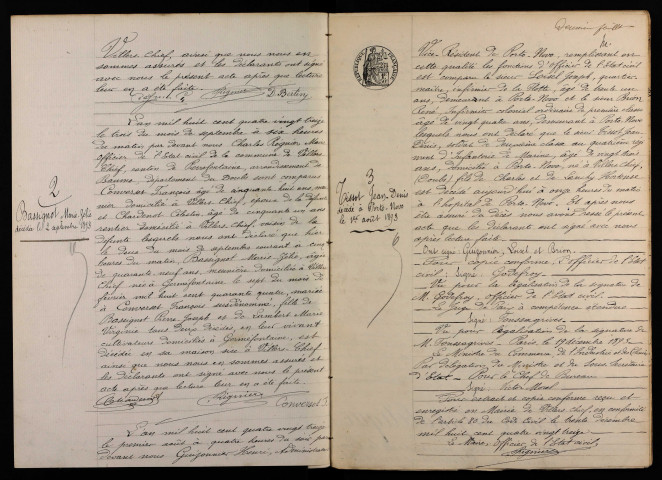 Villers Chief, ainsi que nous nous en
sommes assurés et les déclarants ont signé
avec nous le présent acte après que lecture
leur en a été faite.
L'an mil huit cent quatre vingt treize
le trois du mois de septembre à six heures
du matin par devant nous Charles Regnier Maire
officier de l'Etat civil de la commune de Villers
Chief, canton de Pierrefontaine, arrondissement de
Baume, département du Doubs sont comparus
Conversat François âgé de cinquante huit ans
domicilié à Villers Chief, époux de la défunte
et Chardenot Célestin, âgé de cinquante un ans
rentier domicilié à Villers Chief, voisin de la
défunte lesquels nous ont déclaré que hier
le deux du mois de septembre courant à cinq
heures du matin, Bassignot Marie Zélie, âgée
de quarante neuf ans, domiciliée à Villers
Chief née à Germéfontaine le sept du mois de
février mil huit cent quarante quatre, mariée
à Conversat François susdénommé, fille de
Bassignot Pierre Joseph et de Lambert Marie
Virginie tous deux décédés, en leur vivant
cultivateurs domiciliés à Germéfontaine, est
décédée en sa maison sise à Villers Chief
ainsi que nous nous en sommes assurés et
les déclarants ont signé avec nous le présent
acte après que lecture leur en a été faite.
Regnier
Conversat F.
2
Bassignot Marie Zélie
décédée le 2 septembre 1893
L'an mil huit cent quatre vingt treize
le premier août à quatre heures du soir par
devant nous Guizonnier Henri, Administrateur
Dernier feuillet
Vice-Résident de Porto-Novo, remplissant en
cette qualité les fonctions d'officier de l'Etat civil
est comparu le sieur Loisel Joseph, quartier-
maître, infirmier de la flotte, âgé de trente
ans, demeurant à Porto-Novo et le sieur Brion
René, infirmier colonial ordinaire de première classe
âgé de vingt quatre ans, demeurant à Porto-Novo
lesquels nous ont déclaré que le sieur Tissot Jean
Denis, soldat de deuxième classe au quatrième régi-
ment d'Infanterie de Marine, âgé de vingt trois
ans, domicilié à Porto-Novo, né à Villers Chief,
(Doubs), fils de Charles et de
est décédé aujourd'hui à onze heures du matin
à l'hôpital de Porto-Novo. Et après nous
être assuré du décès nous avons dressé le présent
acte que les déclarants ont signé avec nous
après lecture faite.
Ont signé Guizonnier, Loisel et Brion.
Pour copie conforme, l'officier de l'Etat
civil: Signé: Godefroy.
Vu pour la légalisation de la signature de
M. Godefroy, officier de l'Etat civil.
Le juge de Paix à compétence étendue
Signé: Foussagrives
Vu pour légalisation de la signature de
M. Foussagrives Paris, le 19 décembre 1893
Le Ministre du Commerce de l'Industrie et des Colonies
Par délégation du Ministre et du Sous Secrétaire
d'Etat Pour le Chef de Bureau
Signé: Victor Morel
Pour extrait et copie conforme reçu et
enregistré en Mairie de Villers Chief, en conformité
de l'article 80 du Code Civil le trente décembre
mil huit cent quatre vingt treize
Le Maire, officier de l'Etat civil,
Regnier
3
Tissot Jean Denis
décédé à Porto-Novo
le 1er août 1893